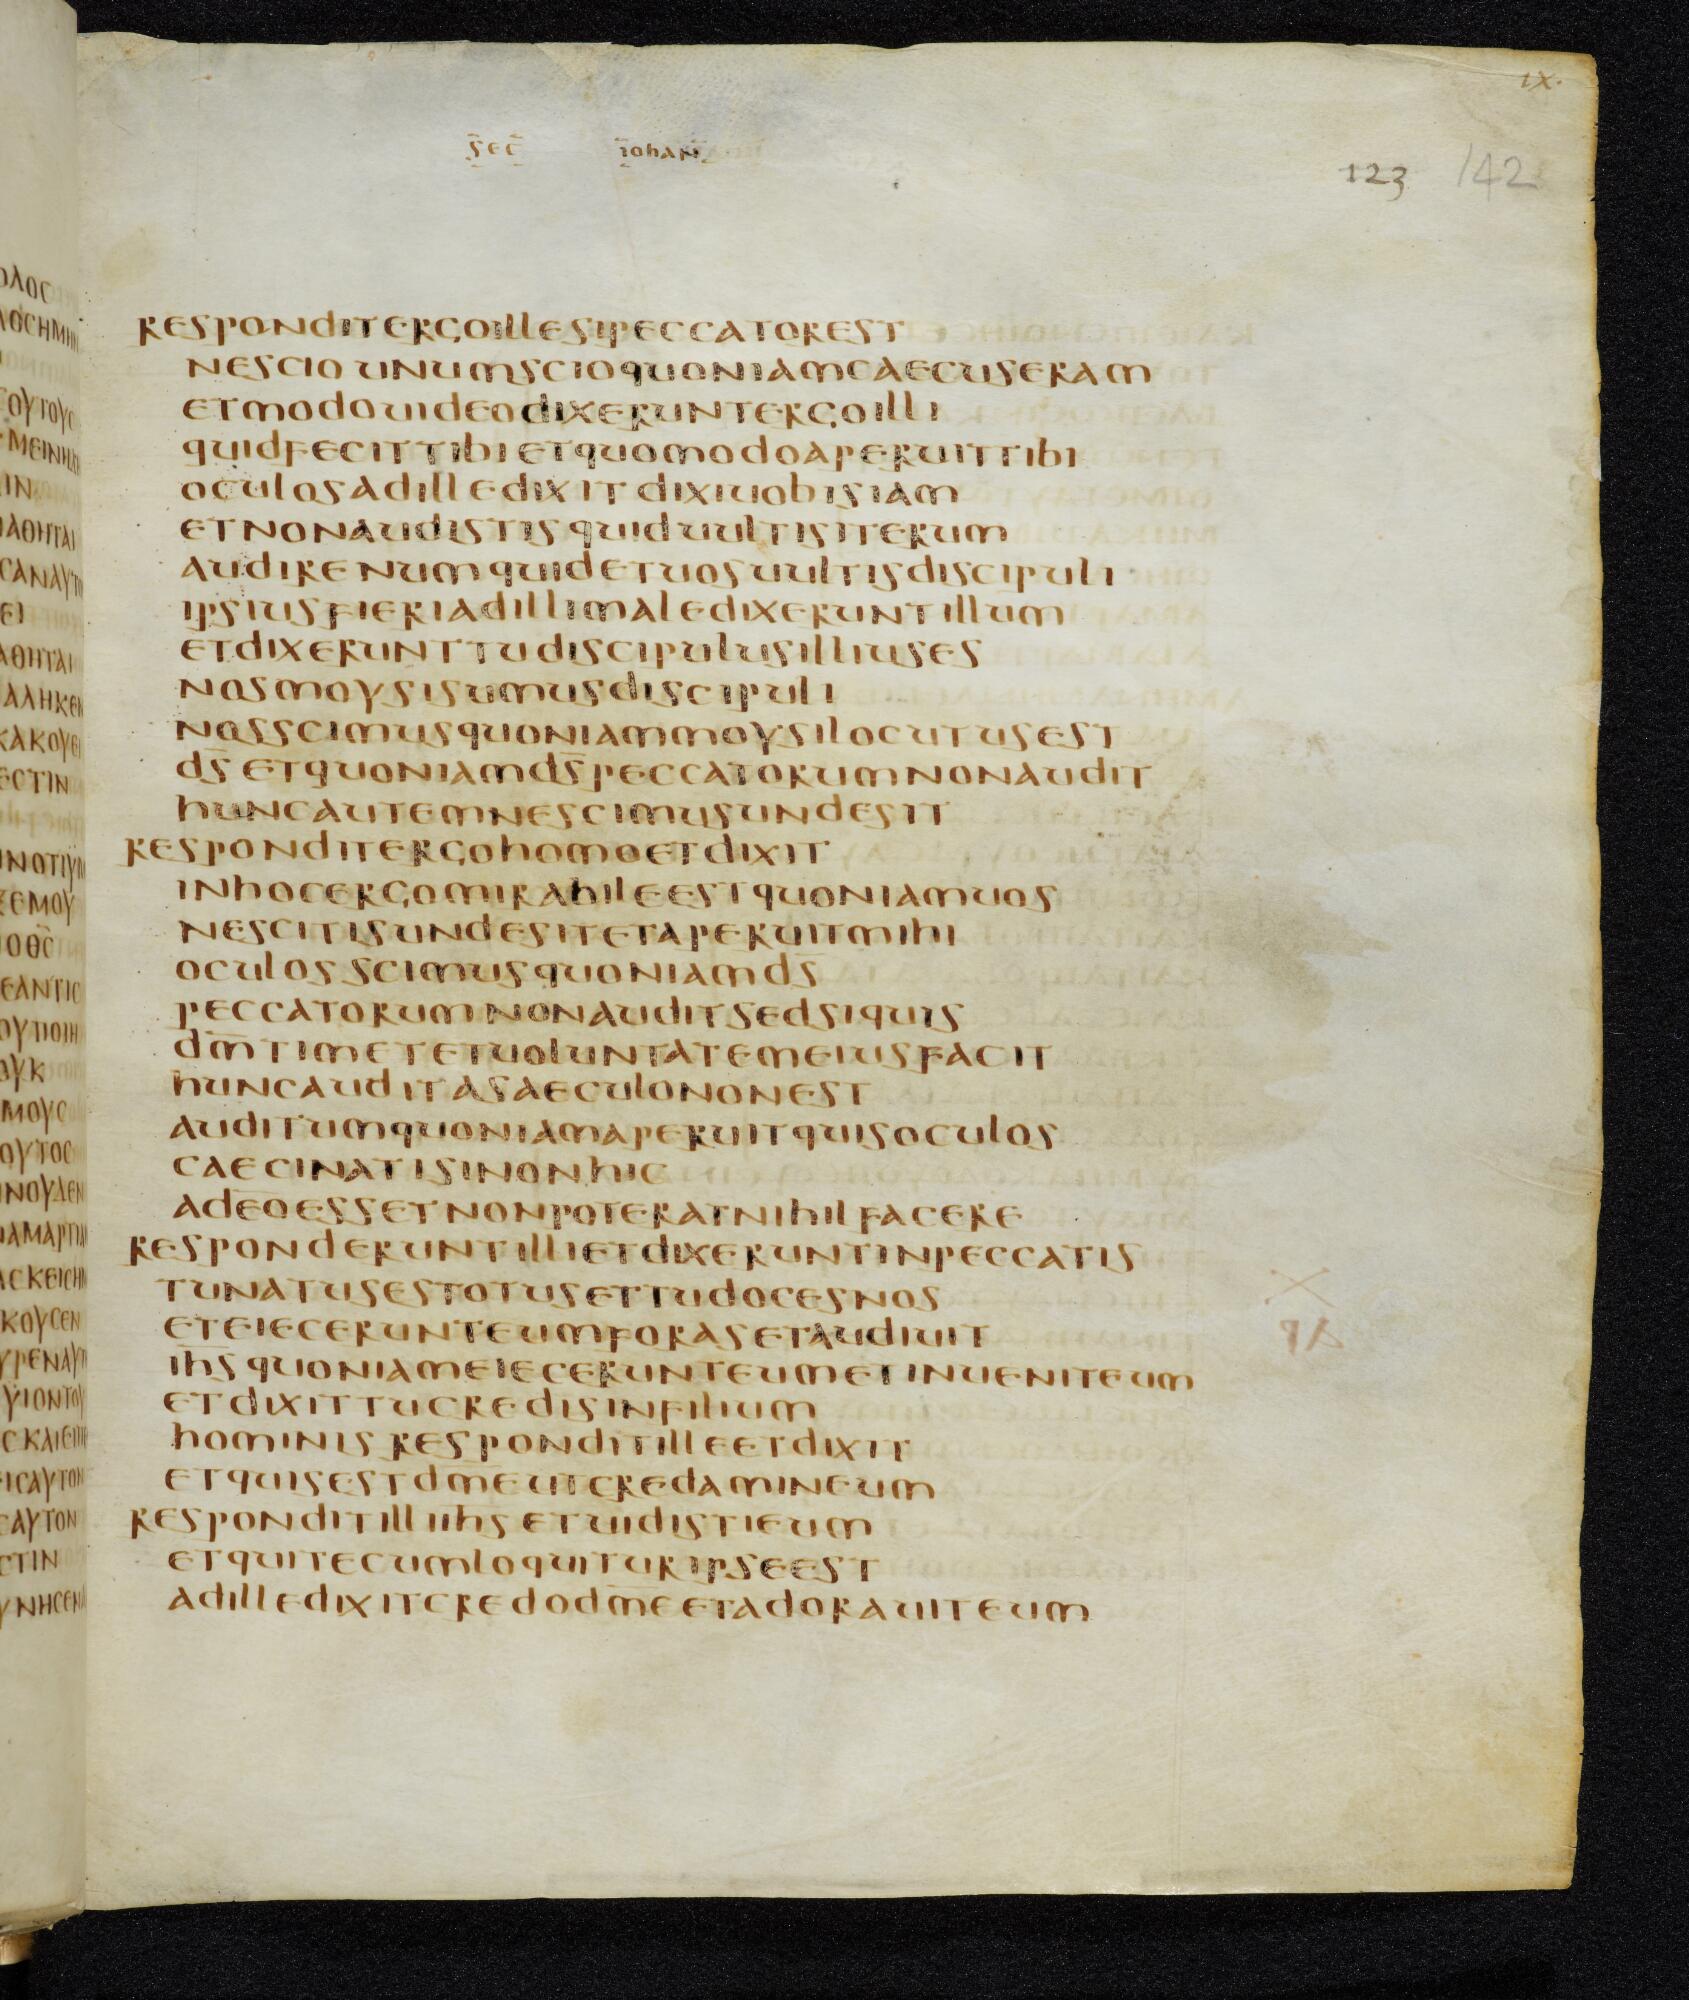 ιχ.
sec iohan
123 142
respondit ergo ille si peccator est
nescio unum scio quoniam caecus eram
et modo uideo dixerunt ergo illi
quid fecit tibi et quomodo aperuit tibi
oculos ad ille dixit dixi uobis iam
et non audistis quid uultis iterum
audire numquid et uos uultis discipuli
ipsius fieri ad illi maledixerunt illum
et dixerunt tu discipulus illius es
nos moysi sumus discipuli
nos scimus quoniam moysi locutus est
d̅s̅ et quoniam d̅s̅ peccatorum non audit
hunc autem nescimus unde sit
respondit ergo homo et dixit
in hoc ergo mirabile est quoniam uos
nescitis unde sit et aperuit mihi
oculos scimus quoniam d̅s̅
peccatorum non audit sed si quis
d̅m̅ timet et uoluntatem eius facit
hunc audit a saeculo non est
auditum quoniam aperuit quis oculos
caeci nati si non hic
a deo esset non poterat nihil facere
responderunt illi et dixerunt in peccatis
tu natus es totus et tu doces nos
et eiecerunt eum foras et audiuit
i̅h̅s̅ quoniam eiecerunt eum et inuenit eum
et dixit tu credis in filium
hominis respondit ille et dixit
et quis est d̅m̅e̅ ut credam in eum
respondit illi ihs et uidisti eum
et qui tecum loquitur ipse est
ad ille dixit credo d̅m̅e̅ et adorauit eum